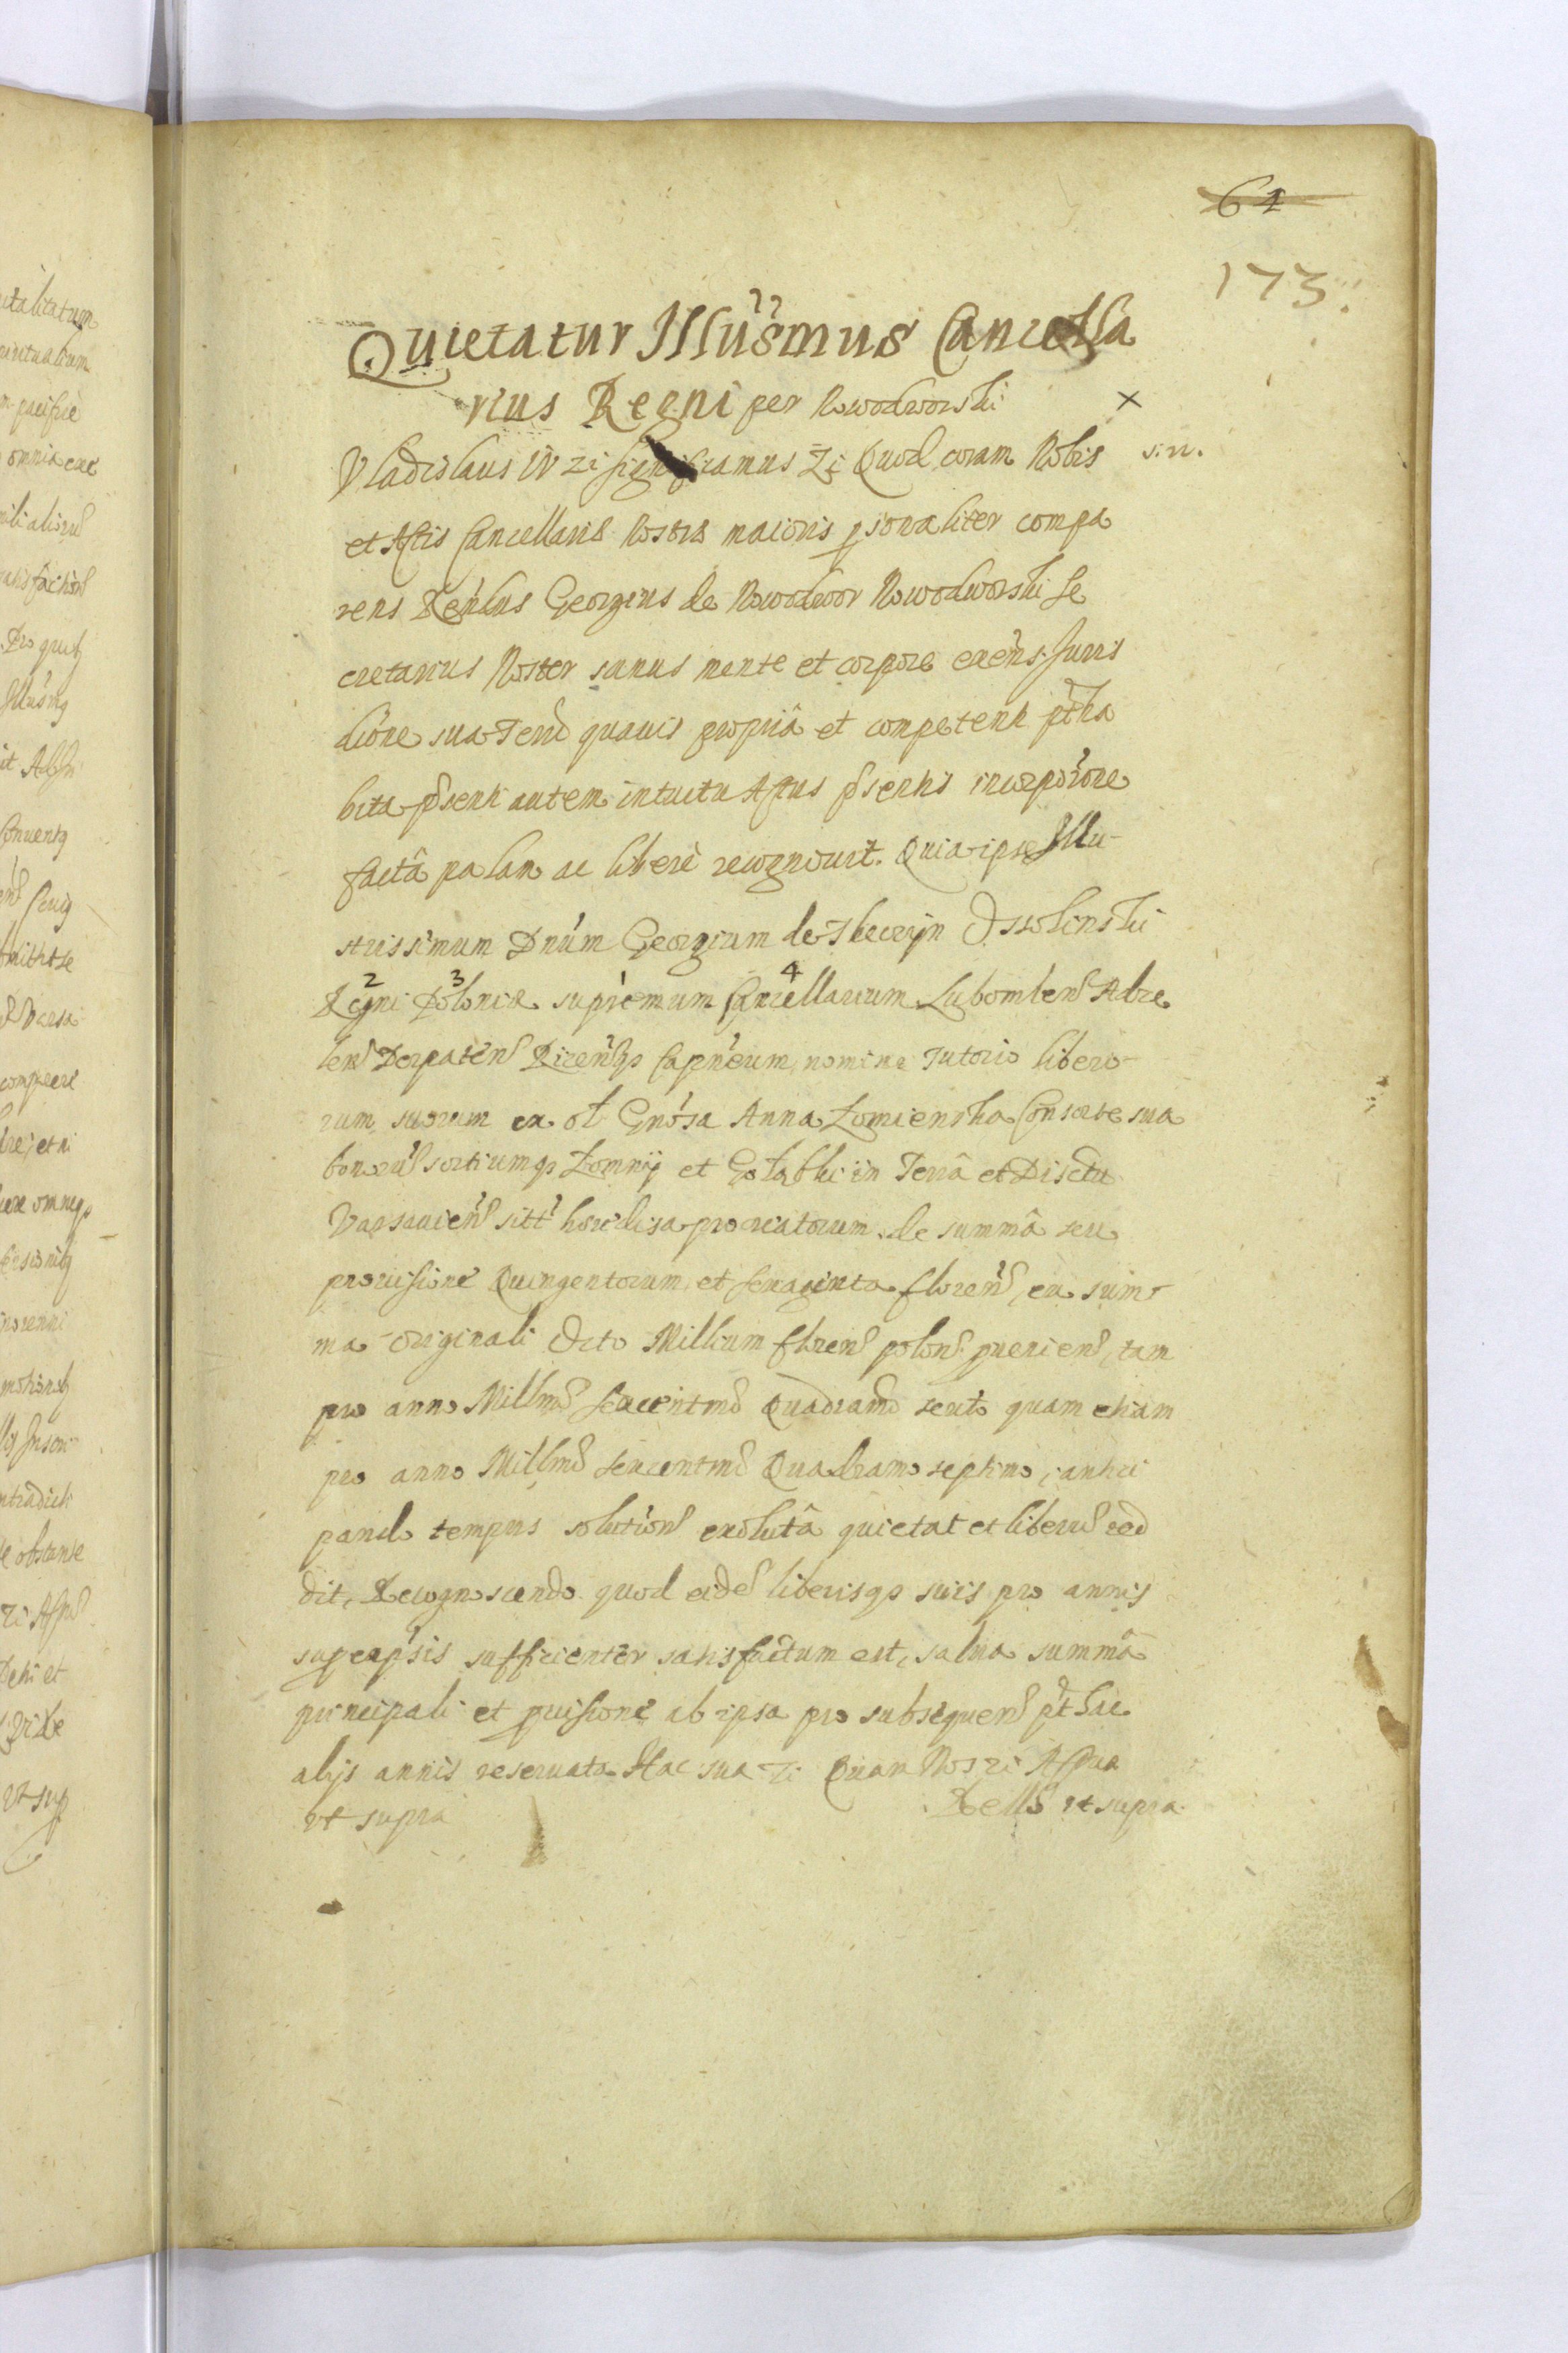 61
173.
Quietatur Illu͂smus Cancella
rius Regni per Nowodworski
×
Vladislaus IV zi significamus zi Quod coram Nobis
s. n.
et Actis Cancellariæ Nostræ maioris psonaliter compa
rens Rendus Georgius de Nowodwor Nowodworski Se
cretarius Noster sanus mente et corpore exens Juris
dione sua Terrī quavis propriâ et competenti ptha
bita psenti autem intuitu Actus psentis incorporōne
factâ palam ac liberè recognovit. Quia ipse Illu-
strissimum Dnūm Georgium de Thecczyn Ossolinski
2 3 1 4
Regni Poloniæ supremum Cancellarium Lubomlen Adze
len Derpaten Ricensqs Capneum, nomine Tutorio libero-
rum suorum ex ol Gnosa Anna Łomienska Consorte sua
bonorū sortiumqs Łomnÿ et Gołąbki in Terrâ et Distctu
Varsauien sitt horedisa procreatorum de summâ seu
provisione Quingentorum et sexaginta floren, ex sum-
ma originali Octo Millium floren polon proenien, tam
pro anno Millmo sexcentmo Quadramo sexto quam etiam
pro anno Millmo sexcentmo Quadramo septimo, antici
pando tempus solution exolutâ quietat et liberū red
dit, Recognoscendo quod eidē liberisqs suis pro annis
supeapsis sufficienter satisfactum est, salua summâ
principali et prouisione ab ipsa pro subsequen pthac
alÿs annis reseruata Hac sua zi Quam Nos zi Actua
vt supra Rello vt supra